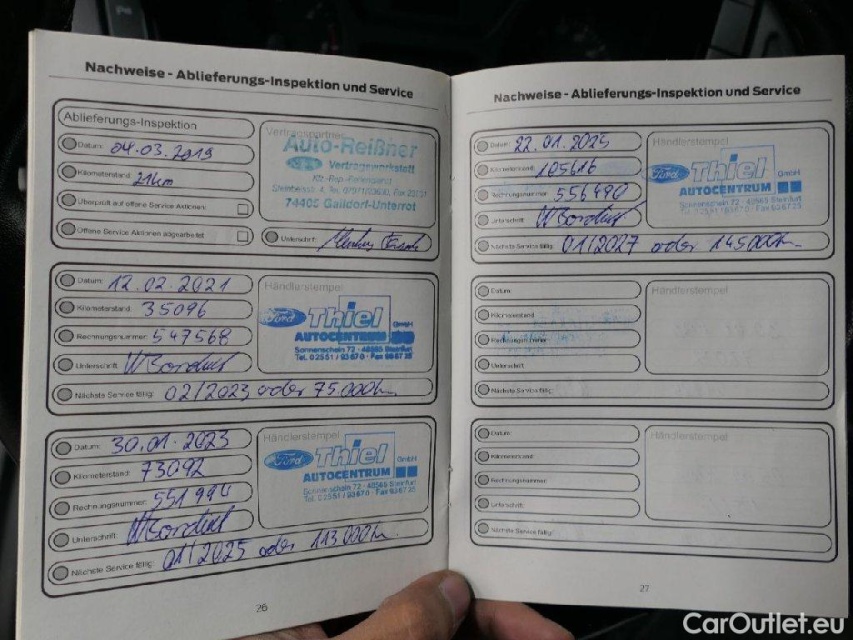 Nachweise - Ablieferungs-Inspektion und Service
Ablieferungs-Inspektion
Datum: 04.03.2019
Kilometerstand: 21km
Überprüft auf offene Service Aktionen:
Offene Service Aktionen abgearbeitet:
Unterschrift:
Vertragspartner
Auto-Reißner
Ford Vertragswerkstatt
74405 Gaildorf-Unterrot
Datum: 12.02.2021
Kilometerstand: 35096
Rechnungsnummer: 547568
Unterschrift:
Nächste Service fällig: 02/2023 oder 75.000km
Händlerstempel
Ford Thiel GmbH
AUTOCENTRUM
Sonnenschein 72 - 48565 Steinfurt
Tel. 02551/93670 - Fax 936725
Datum: 30.01.2023
Kilometerstand: 73092
Rechnungsnummer: 551994
Unterschrift:
Nächste Service fällig: 01/2025 oder 113000km
Händlerstempel
Ford Thiel GmbH
AUTOCENTRUM
Sonnenschein 72 - 48565 Steinfurt
Tel. 02551/93670 - Fax 936725
26
Nachweise - Ablieferungs-Inspektion und Service
Datum: 22.01.2025
Kilometerstand: 105616
Rechnungsnummer: 556490
Unterschrift:
Nächste Service fällig: 01/2027 oder 145000km
Händlerstempel
Ford Thiel GmbH
AUTOCENTRUM
Sonnenschein 72 - 48565 Steinfurt
Tel. 02551/93670 - Fax 936725
Datum:
Kilometerstand:
Rechnungsnummer:
Unterschrift:
Nächste Service fällig:
Händlerstempel
Datum:
Kilometerstand:
Rechnungsnummer:
Unterschrift:
Nächste Service fällig:
Händlerstempel
27
CarOutlet.eu